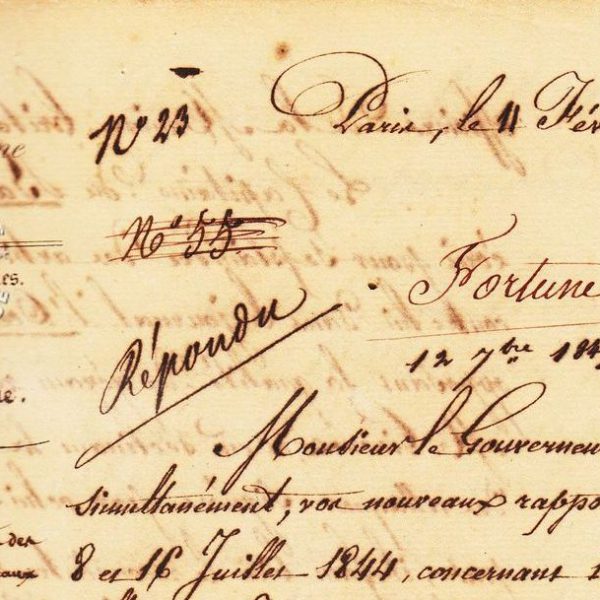 Nº 23
Paris, le 11 Fév
Nº 55
Fortune
es.
Répondu
12 7bre 184
e.
Monsieur le Gouverneu
simultanément, vos nouveaux rappo
des
8 et 16 Juillet 1844, concernant
aux